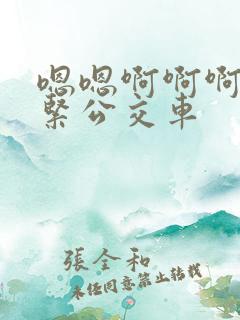 嗯嗯啊啊啊
紧公交车
張全和
未经同意禁止转载